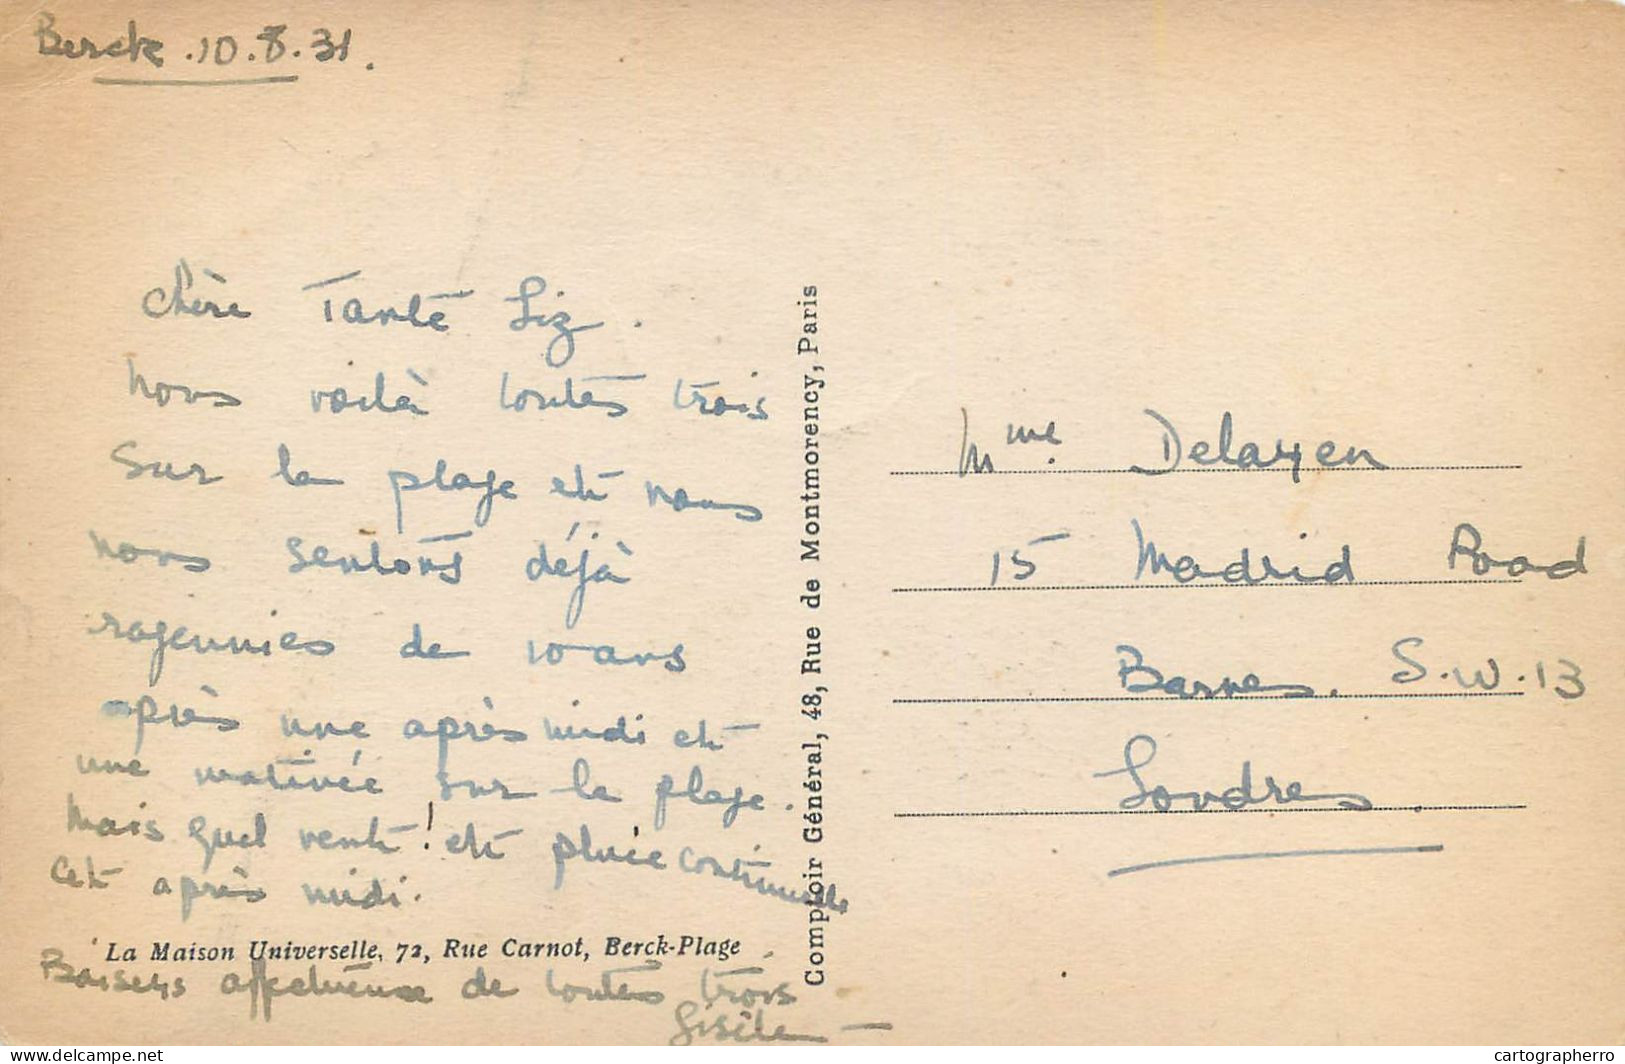 Berck .10.8.31.
Chère Tante Liz.
nous voilà toutes trois
sur la plage et nous
nous sentons déjà
rajeunies de 10 ans
après une après midi et
une matinée sur la plage.
Mais quel vent! et pluie continuelle
cet après midi.
La Maison Universelle, 72, Rue Carnot, Berck-Plage
Baisers affectueux de toutes trois
Gisèle
Comptoir Général, 48, Rue de Montmorency, Paris
Mme. Delayen
15 Madrid Road
Barnes. S.W.13
Londres.
delcampe.net
cartographerro